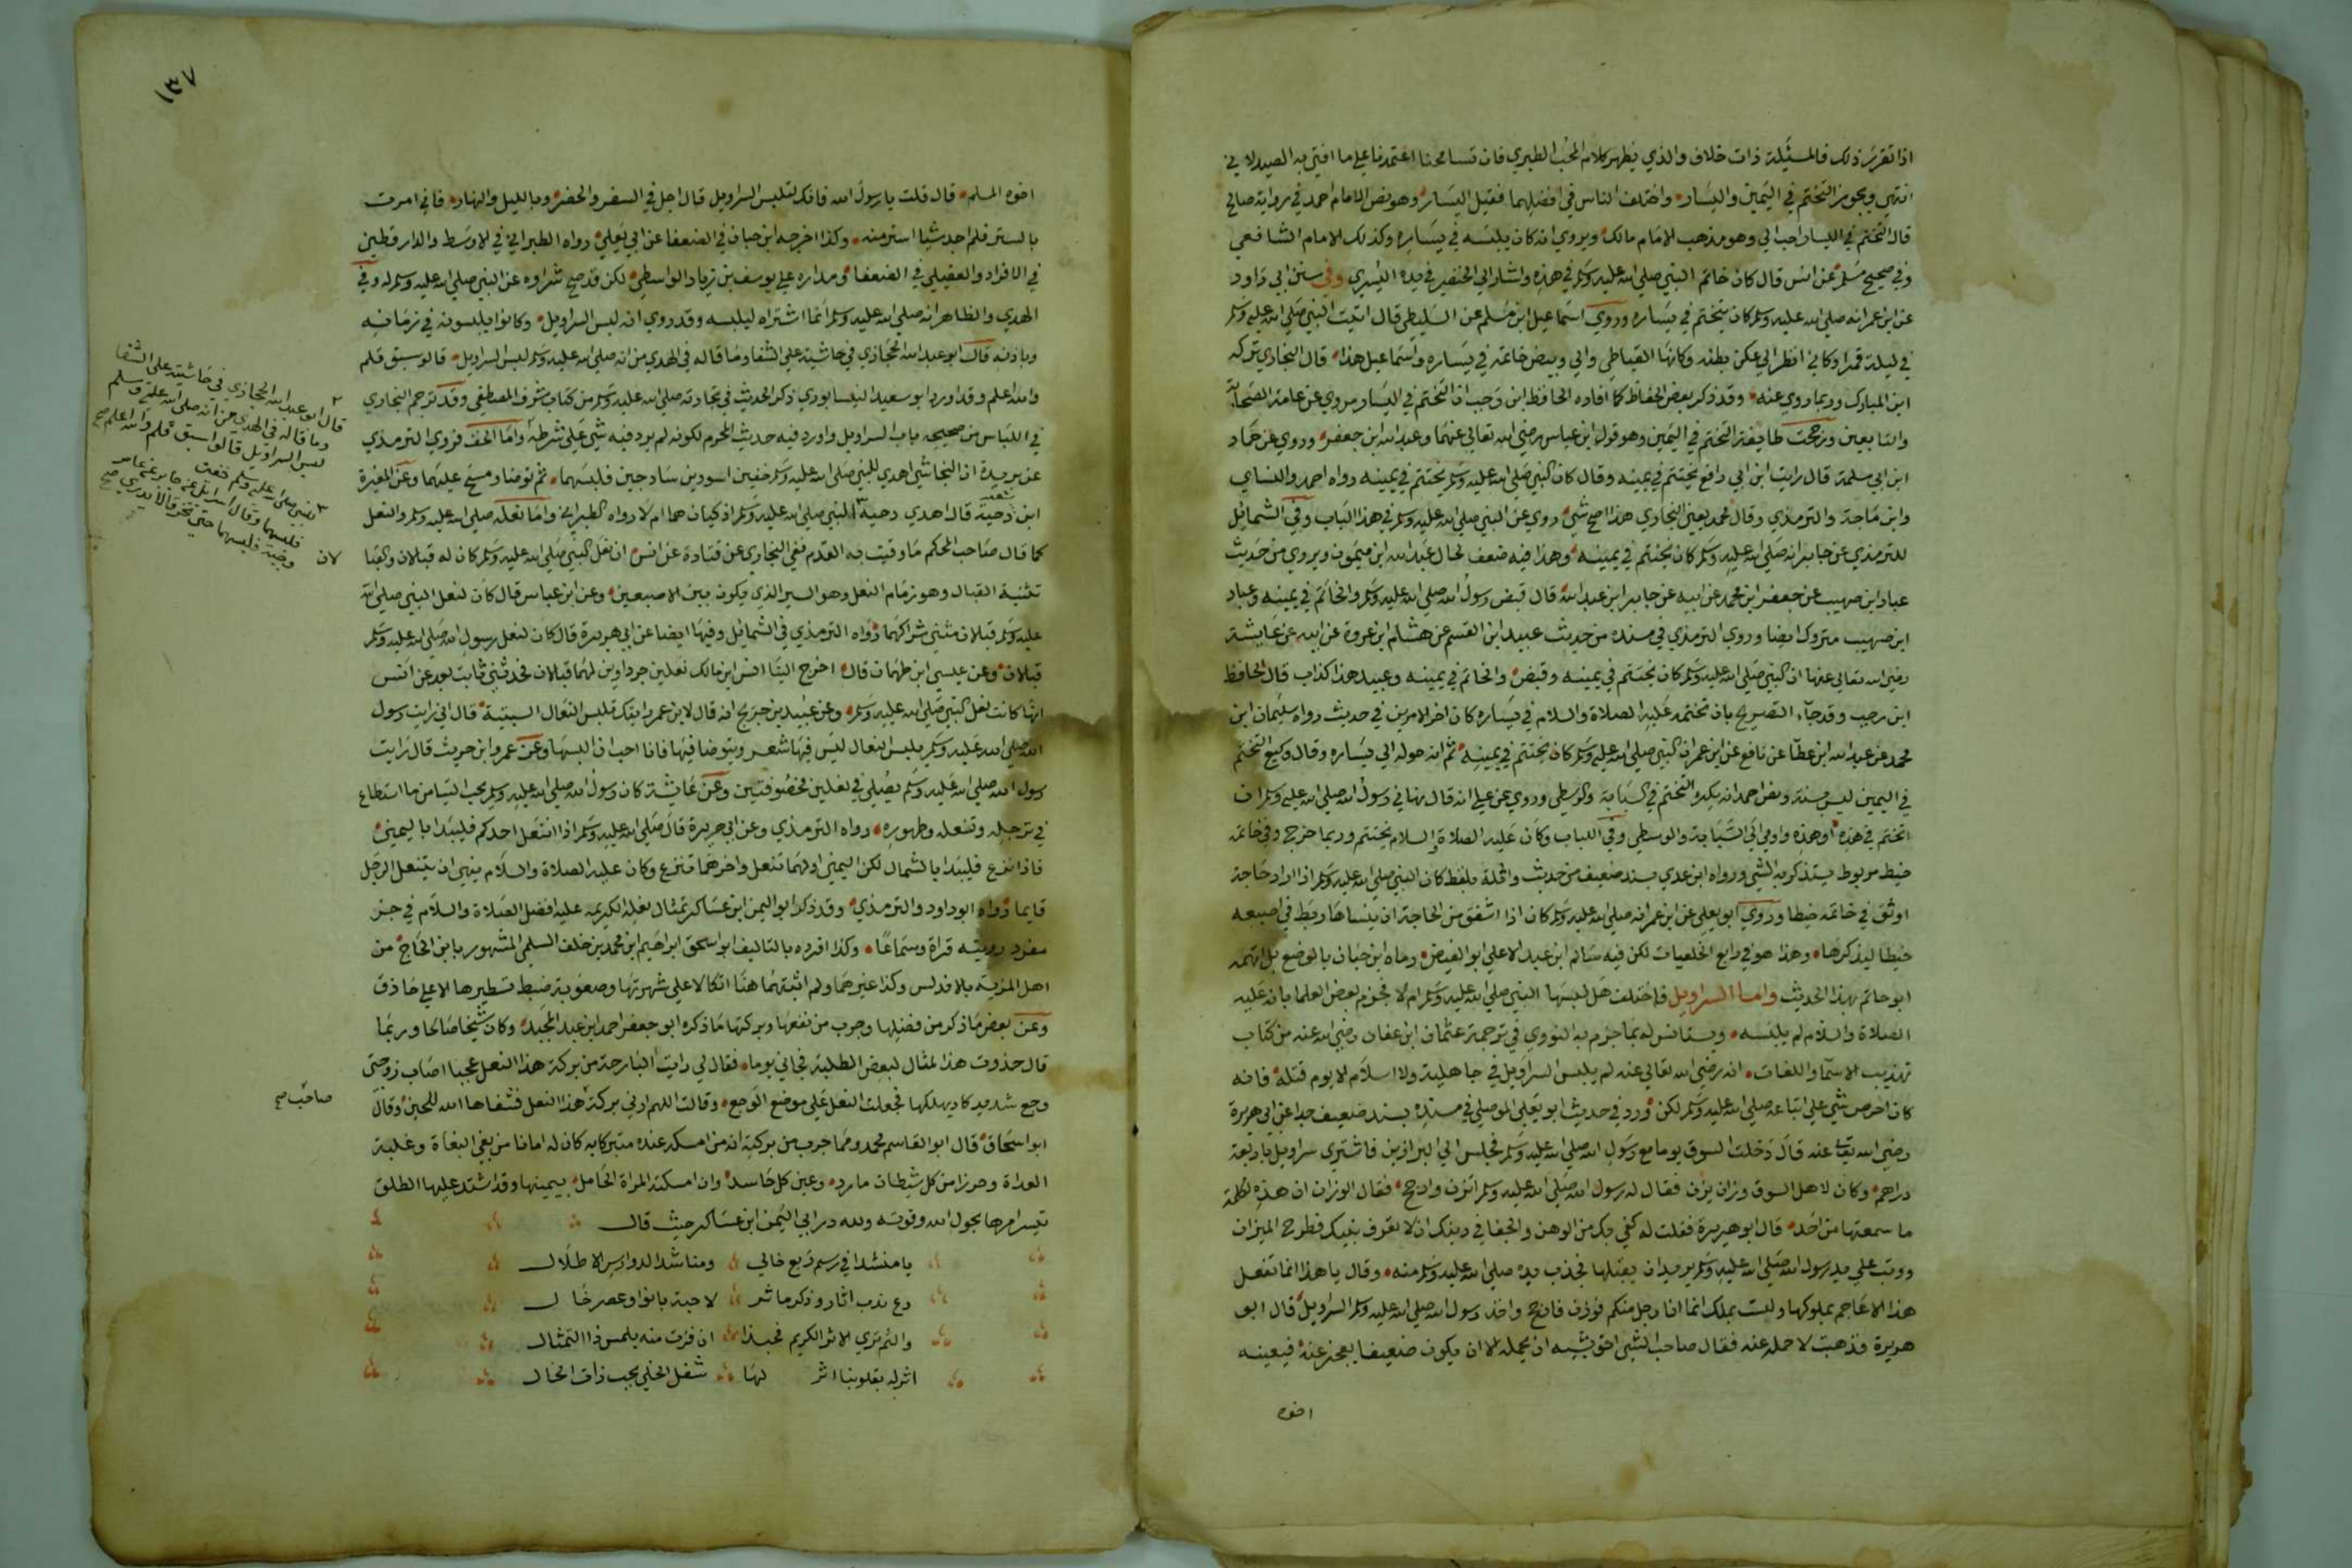 اذا تقرر ذلك فالمسئلة ذات خلاف والذي يظهر كلام المحب الطبري فان تسامحنا اعتمدنا على ما افتى به الصيدلاني
انتهى ويجوز التختم في اليمين واليسار واختلف الناس في افضلهما فقيل اليسار وهو نص الامام احمد في رواية صالح
قال التختم في اليسار احب الي وهو مذهب الامام مالك ويروي انه كان يلبسه في يساره وكذلك الامام الشافعي
وفي صحيح مسلم عن انس قال كان خاتم النبي صلى الله عليه وسلم في هذه واشار الى الخنصر في يده اليسرى وفي سنن ابي داود
عن ابن عمر انه صلى الله عليه وسلم كان يتختم في يساره وروي اسماعيل ابن مسلم عن السليطي قال اتيت النبي صلى الله عليه وسلم
في ليلة قمرا وكاني انظر الى عكن بطنه وكانها القباطي والى وبيض خاتمه في يساره واسماعيل هذا قال البخاري تركه
ابن المبارك وربما روي عنه وقد ذكر بعض الحفاظ كما افاده الحافظ ابن رجب ان التختم في اليسار مروي عن عامة الصحابة
والتابعين ورجحت طايفة التختم في اليمين وهو قول ابن عباس رضي الله تعالى عنهما وعبد الله ابن جعفر وروي عن حماد
ابن ابي سلمة قال رايت ابن ابي رافع يتختم في يمينه وقال كان النبي صلى الله عليه وسلم يتختم في يمينه رواه احمد والنساي
وابن ماجة والترمذي وقال محمد يعني البخاري هذا اصح شي روي عن النبي صلى الله عليه وسلم في هذا الباب وفي الشمائل
للترمذي عن جابر انه صلى الله عليه وسلم كان يتختم في يمينه وهذا فيه ضعف لحال عبد الله ابن ميمون ويروي من حديث
عباد ابن صهيب عن جعفر ابن محمد عن ابيه عن جابر ابن عبد الله قال قبض رسول الله صلى الله عليه وسلم والخاتم في يمينه وعباد
ابن صهيب متروك ايضا وروي الترمذي في مسنده من حديث عبيد ابن القسم عن هشام ابن عروة عن ابيه عن عايشة
رضي الله تعالى عنها ان النبي صلى الله عليه وسلم كان يتختم في يمينه وقبض والخاتم في يمينه وعبيد هذا كذاب قال الحافظ
ابن رجب وقد جاء التصريح بان تختمه عليه الصلاة والسلام في يساره كان اخر الامرين في حديث رواه سليمان ابن
محمد عن عبد الله ابن عطا عن نافع عن ابن عمر ان النبي صلى الله عليه وسلم كان يتختم في يمينه ثم انه حوله الى يساره وقال وكيع التختم
في اليمين ليس بسنة ونص احمد انه يكره التختم في السبابة والوسطى وروي عن علي انه قال نهاني رسول الله صلى الله عليه وسلم ان
اتختم في هذه او هذه واومي الى السبابة والوسطى وفي اللباب وكان عليه الصلاة والسلام يتختم وربما خرج وفي خاتمه
خيط مربوط يستذكر به الشي ورواه ابن عدي بسند ضعيف من حديث واثلة بلفظ كان النبي صلى الله عليه وسلم اذا اراد حاجة
اوثق في خاتمه خيطا وروي ابو يعلى عن ابن عمر انه صلى الله عليه وسلم كان اذا اشفق من الحاجة ان ينساها ربط في اصبعه
خيطا ليذكرها وهذا هو في رابع الخلعيات لكن فيه سالم ابن عبد الاعلى ابو الفيض رماه ابن حبان بالوضع بل اتهمه
ابو حاتم بهذا الحديث واما السراويل فاختلف هل لبسها النبي صلى الله عليه وسلم ام لا فجزم بعض العلما بانه عليه
الصلاة والسلام لم يلبسه ويستانس له بما جزم به النووي في ترجمة عثمان ابن عفان رضي الله عنه من كتاب
تهذيب الاسماء واللغات انه رضي الله تعالى عنه لم يلبس السراويل في جاهلية ولا اسلام الا يوم قتله فانه
كان احرص شي على اتباعه صلى الله عليه وسلم لكن ورد في حديث ابو يعلى الموصلي في مسنده بسند ضعيف جدا عن ابي هريرة
رضي الله تعالى عنه قال دخلت السوق يوما مع رسول الله صلى الله عليه وسلم فجلس الى البزازين فاشترى سراويل باربعة
دراهم وكان لاهل السوق وزان يزن فقال له رسول الله صلى الله عليه وسلم اتزن وارجح فقال الوزان ان هذه لكلمة
ما سمعتها من احد قال ابو هريرة فقلت له كفي بك من الوهن والجفا في دينك ان لا تعرف نبيك فطرح الميزان
ووثب على يد رسول الله صلى الله عليه وسلم يريد ان يقبلها فجذب يده صلى الله عليه وسلم منه وقال يا هذا انما تفعل
هذا الاعاجم بملوكها ولست بملك انما انا رجل منكم فوزن فارجح واخذ رسول الله صلى الله عليه وسلم السراويل قال ابو
هريرة فذهبت لاحمله عنه فقال صاحب الشي احق بشيه ان يحمله الا ان يكون ضعيفا يعجز عنه فيعينه
اخوه
١٣٧
اخوه المسلم قال قلت يا رسول الله فانك لتلبس السراويل قال اجل في السفر والحضر وبالليل والنهار فاني امرت
بالستر فلم اجد شيا استر منه وكذا اخرجه ابن حبان في الضعفا عن ابي يعلى رواه الطبراني في الاوسط والدارقطني
في الافراد والعقيلي في الضعفا ومداره على يوسف بن زياد الواسطي لكن قد صح شراوه عن النبي صلى الله عليه وسلم له وفي
الهدي والظاهر انه صلى الله عليه وسلم انما اشتراه ليلبسه وقد روي انه لبس السراويل وكانوا يلبسونه في زمانه
وباذنه قال ابو عبد الله الحجازي في حاشيته على الشفا وما قاله في الهدي من انه صلى الله عليه وسلم لبس السراويل قالوا سبق قلم
والله اعلم وقد اورد ابو سعيد النيسابوري ذكر الحديث في تجارته صلى الله عليه وسلم من كتاب شرف المصطفى وقد ترجم البخاري
في اللباس من صحيحه باب السراويل واورد فيه حديث المحرم لكونه لم يرد فيه شي على شرطه واما الخف فروي الترمذي
عن بريدة ان النجاشي اهدى للنبي صلى الله عليه وسلم خفين اسودين ساذجين فلبسهما ثم توضا ومسح عليهما وعن المغيرة
ابن شعبة قال اهدى دحية للنبي صلى الله عليه وسلم اذكيان هما ام لا رواه الطبراني واما نعله صلى الله عليه وسلم والنعل
كما قال صاحب المحكم ما وقيت به القدم ففي البخاري عن قتادة عن انس ان نعل النبي صلى الله عليه وسلم كان له قبالان والقبالان
تثنية القبال وهو زمام النعل وهو السير الذي يكون بين الاصبعين وعن ابن عباس قال كان لنعل النبي صلى الله
عليه وسلم قبالان مثنى شراكهما رواه الترمذي في الشمائل وفيها ايضا عن ابي هريرة قال كان لنعل رسول الله صلى الله عليه وسلم
قبالان وعن عيسى ابن طهمان قال اخرج الينا انس ابن مالك نعلين جرداوين لهما قبالان فحدثني ثابت بعد عن انس
انها كانت نعل النبي صلى الله عليه وسلم وعن عبيد بن جريج انه قال لابن عمر رايتك تلبس النعال السبتية قال اني رايت رسول
الله صلى الله عليه وسلم يلبس النعال ليس فيها شعر ويتوضا فيها فانا احب ان البسها وعن عمرو ابن حريث قال رايت
رسول الله صلى الله عليه وسلم يصلي في نعلين مخصوفتين وعن عايشة كان رسول الله صلى الله عليه وسلم يحب التيامن ما استطاع
في ترجله وتنعله وطهوره رواه الترمذي وعن ابي هريرة قال صلى الله عليه وسلم اذا انتعل احدكم فليبدا باليمنى
فاذا نزع فليبدا بالشمال لكن اليمنى اولهما تنعل واخرهما تنزع وكان عليه الصلاة والسلام ينهى ان ينتعل الرجل
قايما رواه ابو داود والترمذي وقد ذكر ابو اليمن ابن عساكر تمثال نعله الكريمه عليه افضل الصلاة والسلام في جز
مفرد رويته قراة وسماعا وكذا افرده بالتاليف ابو اسحق ابراهيم ابن محمد بن خلف السلمي المشهور بابن الحاج من
اهل المرية بالاندلس وكذا غيرهما ولم اثبتهما هنا اتكالا على شهرتها وصعوبة ضبط تسطيرها الا على حاذق
وعن بعض ما ذكر من فضلها وجرب من نفعها وبركتها ما ذكره ابو جعفر احمد ابن عبد المجيد وكان شيخا صالحا وربما
قال حذوت هذا المثال لبعض الطلبة فجاني يوما فقال لي رايت البارحة من بركة هذا النعل عجبا اصاب زوجتي
وجع شديد كاد يهلكها فجعلت النعل على موضع الوجع وقالت اللهم ارني بركة هذا النعل فشفاها الله للحين وقال
صاحب صح
ابو اسحاق قال ابو القاسم محمد ومما جرب من بركته ان من امسكه عنده متبركا به كان له امانا من بغي البغاة وغلبة
العداة وحرزا من كل شيطان مارد وعين كل حاسد وان امسكته المراة الحامل بيمينها وقد اشتد عليها الطلق
تيسر امرها بحول الله وقوته ولله در ابي اليمن ابن عساكر حيث قال
يا منشدا في رسم ربع خالي ومناشدا لدوارس الاطلال
دع ندب اثار وذكر ماثر لاحبة بانوا وعصر خال
والثم ثرى الاثر الكريم فحبذا ان فزت منه بلمس ذا التمثال
اثر له بقلوبنا اثر لها شغل الخلي بحب ذات الخال
قال ابو عبد الله الحجازي في حاشيته على الشفا
وما قاله في الهدي من انه صلى الله عليه وسلم
لبس السراويل قالوا سبق قلم والله اعلم صح
للنبي صلى الله عليه وسلم خفين
فلبسهما وقال اسرايل عن جابر عن عامر
وجبة فلبسهما حتى تخرقا لا يدري صح
لان